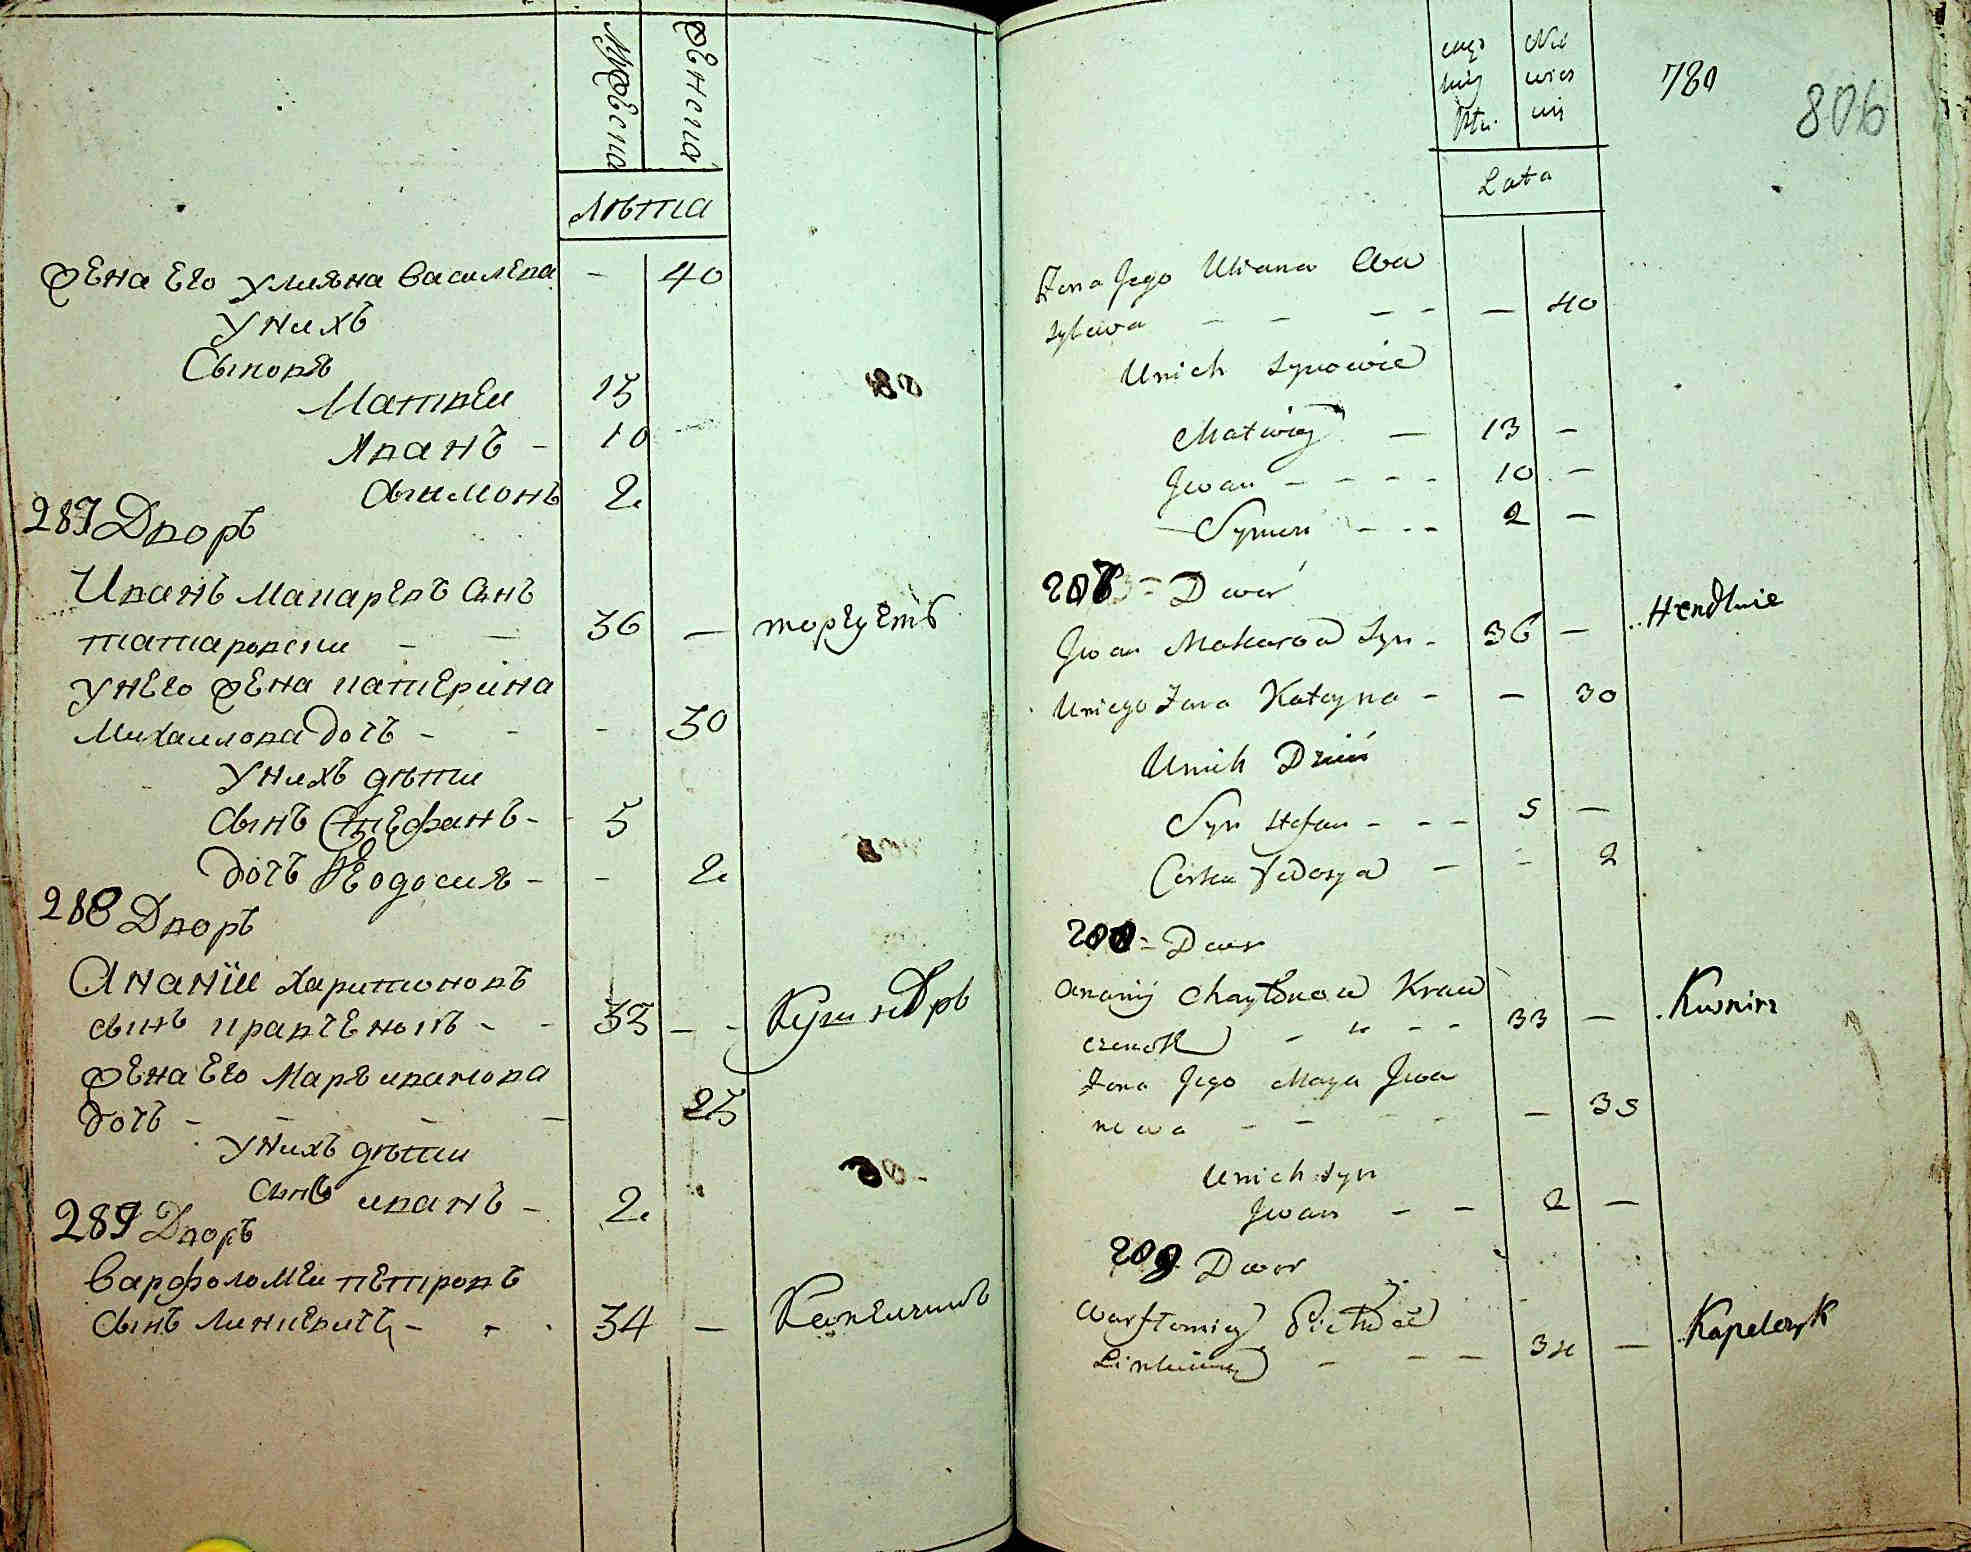 Мужеска
Женска
Лѣта
Жена его Улияна Василева - 40
У нихъ
Сыновя
Матвеи 13
Иванъ - 10
Сымонъ 2
287 Дворъ
Иванъ Макаревъ Сынъ
татаровски - - 36 - торгуетъ
У него жена катерина
Михаилова дочь - - - 30
У нихъ дѣти
Сынъ Стефанъ - 5
дочь Феодосия - - 2
288 Дворъ
Ананïи харитоновъ
сынъ кравченокъ - - 33 - - Кушнѣръ
жена его Маря иванова
дочь - - - - 25
У нихъ дѣти
Сынъ иванъ - 2
289 Дворъ
Варфоломеи петровъ
Сынъ - - - 34 - Капелчикъ
780
806
Lata
Żona Jego Uliana Wa
sylewa - - - - - 40
Unich Synowie
Matwiey - 13 -
Jwan - - - - 10 -
Symon - - - 2 -
287 - Dwor
Jwan Makarow Syn - 36 - Hendluie
Uniego Żona Kateryna - - 30
Unich Dzieci
Syn Stefan - - - 5 -
Corka Fedosya - - 2
288 - Dwor
Ananij Charytonow Kraw
czenok - - - - 33 - Kusnirz
Żona Jego Marya Jwa
nowa - - - - 35
Unich Syn
Jwan - - 2 -
289 Dwor
Warftomiey Pietrow
- - - 34 - Kapelczyk